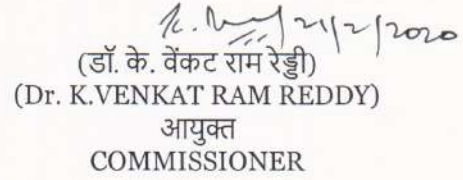 21/2/2020
(डॉ. के. वेंकट राम रेड्डी)
(Dr. K.VENKAT RAM REDDY)
आयुक्त
COMMISSIONER